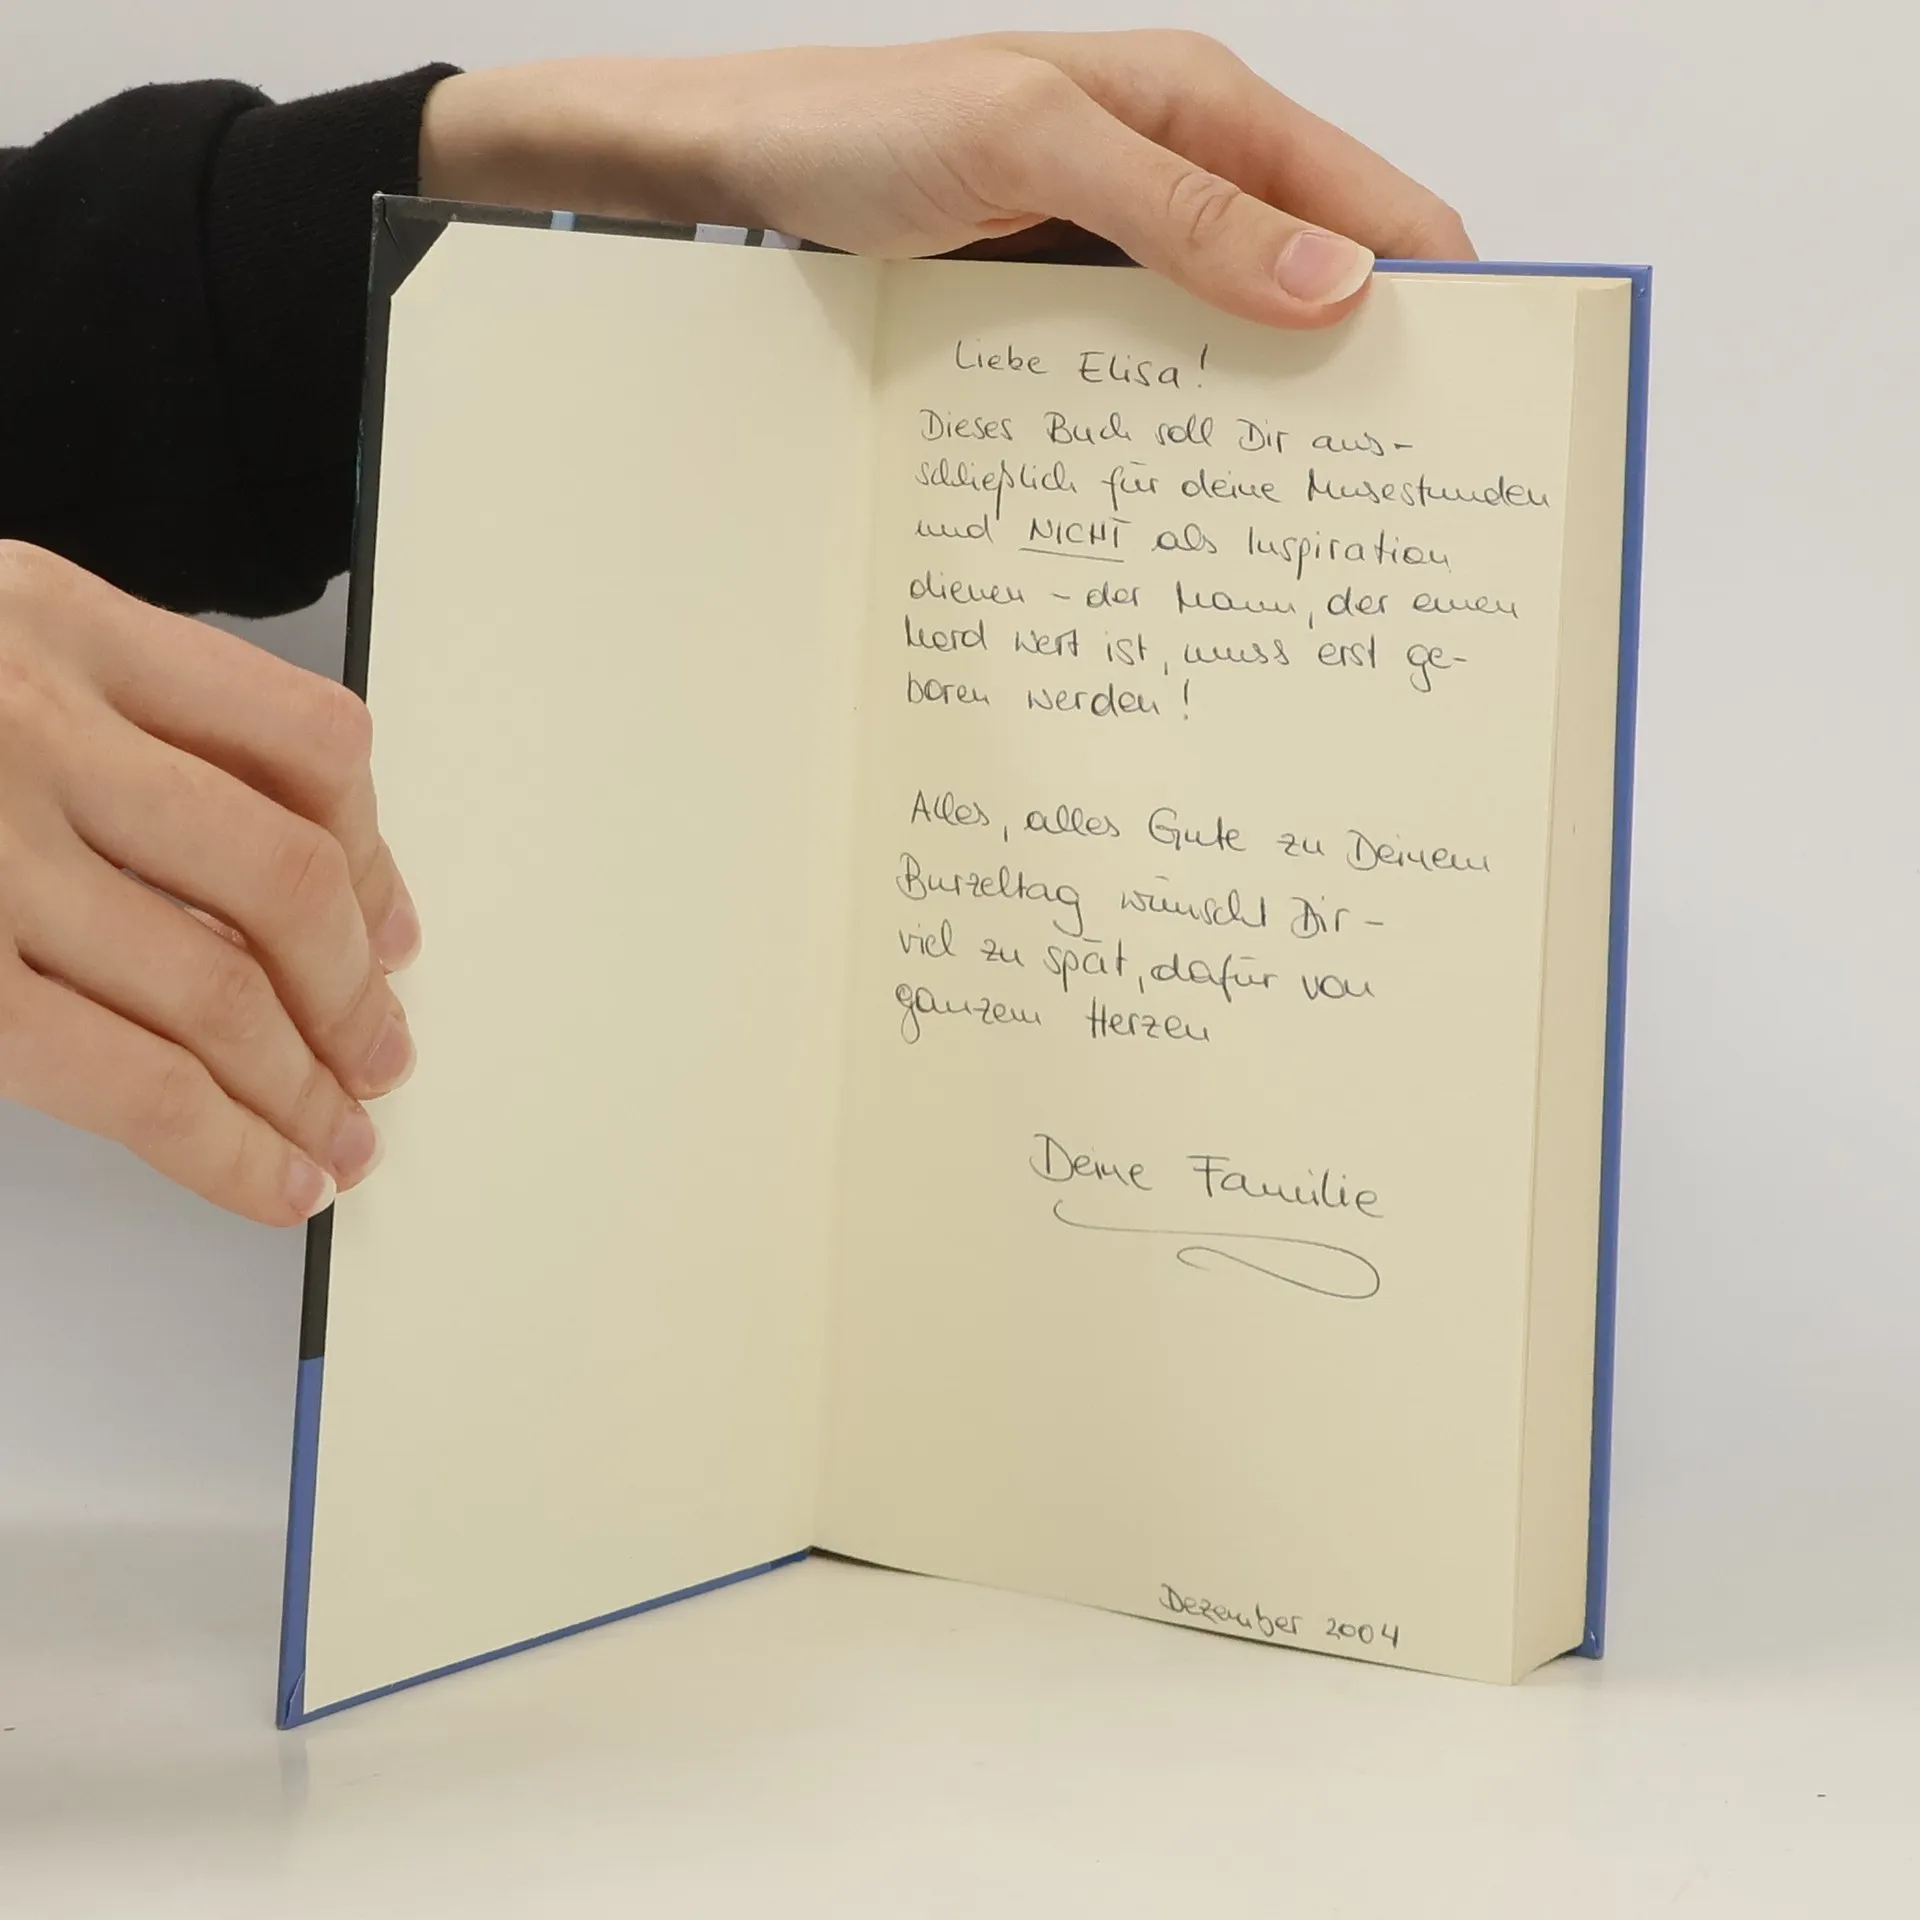 Liebe Elisa!
Dieses Buch soll Dir aus-
schließlich für deine Musestunden
und NICHT als Inspiration
dienen - der Mann, der einen
Mord wert ist, muss erst ge-
boren werden!
Alles, alles Gute zu Deinem
Burzeltag wünscht Dir -
viel zu spät, dafür von
ganzem Herzen
Deine Familie
Dezember 2004